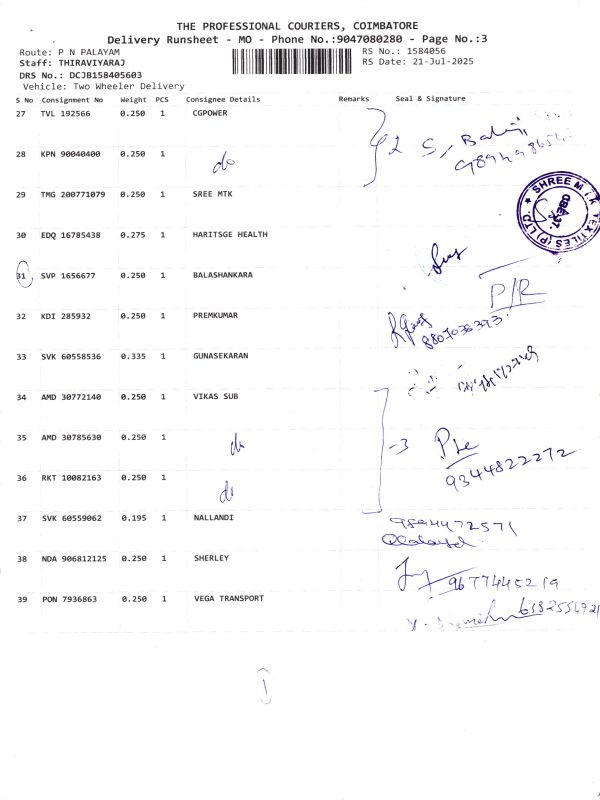 THE PROFESSIONAL COURIERS, COIMBATORE
Delivery Runsheet - MO - Phone No.:9047080280 - Page No.:3
Route: P N PALAYAM
RS No.: 1584056
Staff: THIRAVIYARAJ
RS Date: 21-Jul-2025
DRS No.: DCJB158405603
Vehicle: Two Wheeler Delivery
S No Consignment No Weight PCS Consignee Details Remarks Seal & Signature
27 TVL 192566 0.250 1 CGPOWER
28 KPN 90040400 0.250 1 do
29 TMG 200771079 0.250 1 SREE MTK
SHREE MTK TEXTILES (P) LTD
30 EDQ 16785438 0.275 1 HARITSGE HEALTH
31 SVP 1656677 0.250 1 BALASHANKARA
P/R
32 KDI 285932 0.250 1 PREMKUMAR
33 SVK 60558536 0.335 1 GUNASEKARAN
34 AMD 30772140 0.250 1 VIKAS SUB
35 AMD 30785630 0.250 1 do
-3
9344822272
36 RKT 10082163 0.250 1 do
37 SVK 60559062 0.195 1 NALLANDI
9894472571
38 NDA 906812125 0.250 1 SHERLEY
9677445219
39 PON 7936863 0.250 1 VEGA TRANSPORT